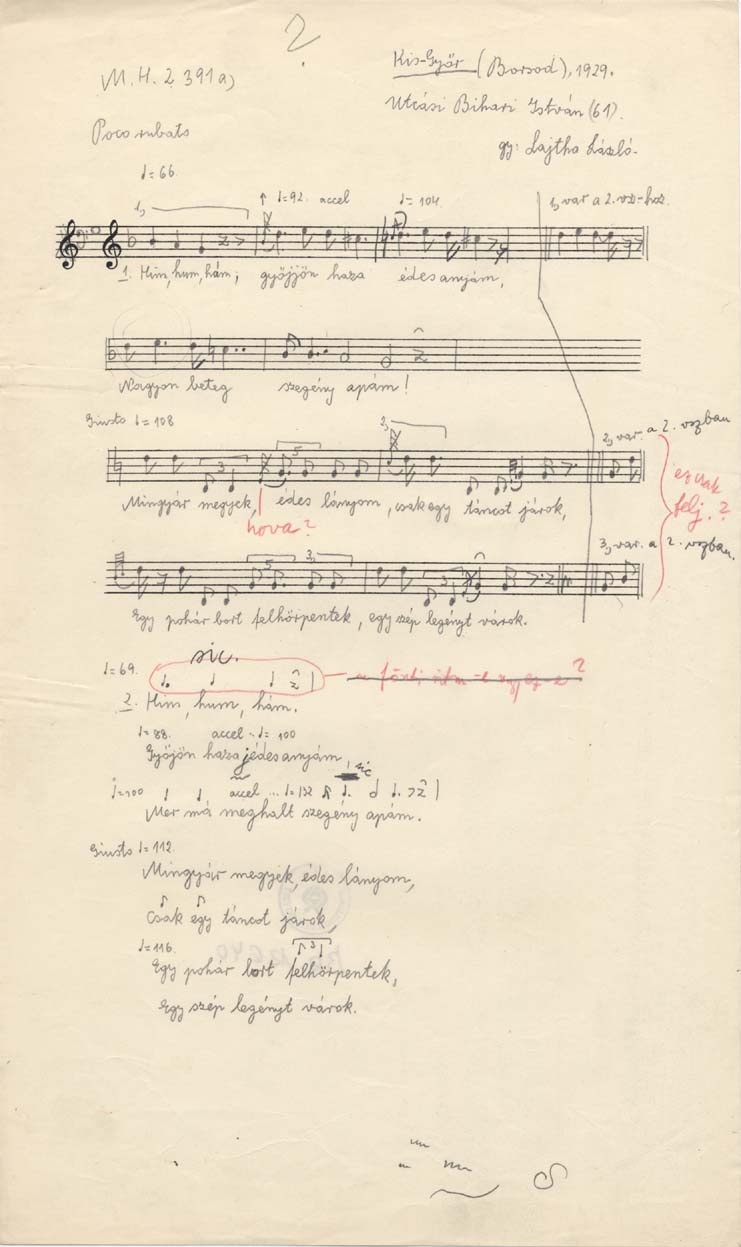 2
M. H. 2391a)
Kis-Győr (Borsod), 1929.
Utcási Bihari István (61).
gy: Lajtha László.
Poco rubato
♩=66.
♩=92. accel
♩=104
1, var a 2. vsz-hoz.
1,
1. Him, hum, hám; gyöjjön haza édesanyám,
Nagyon beteg szegény apám!
Giusto ♩=108
3
5
2,
2, var. a 2. vszban
Mingyár megyek, édes lányom, csakegy táncot járok,
hova?
ez csak
felj.?
5
3,
3
3, var. a 2. vszban.
Egy pohár bort felhörpentek, egy szép legényt várok.
sic.
♩=69.
2. Him, hum, hám.
♩=88. accel - ♩=100
Gyöjön haza édesanyám,
sic
♩=100 accel ... ♩=132
Mer má meghalt szegény apám.
Giusto ♩=112.
Mingyár megyek, édes lányom,
Csak egy táncot járok,
♩=116.
3
Egy pohár bort felhörpentek,
Egy szép legényt várok.